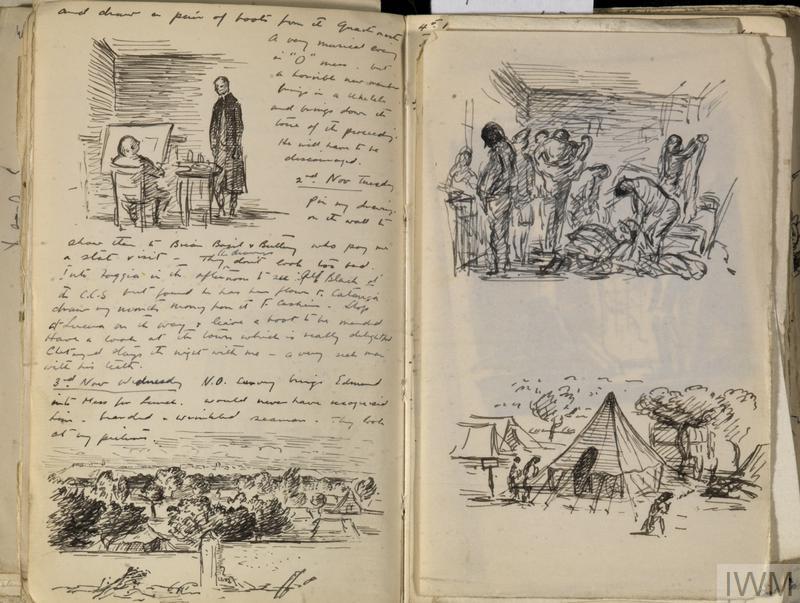 and draw a pair of boots from the Quartermaster
A very musical evening
in "O" mess. but
a horrible new member
brings in a Ukelele
and brings down the
tone of the proceedings.
He will have to be
discouraged.
2nd Nov Tuesday
Pin my drawings
on the wall to
show them to Brian Basil & Buttery who pay me
a state visit - They don't look too bad.
the drawings
Into Foggia in the afternoon to see Alf Black at
the C.C.S but found he has been flown to Catania
draw my months money from the F. Cashier. Stop
at Lucera on the way & leave a boot to be mended
Have a look at the town which is really delightful
stays the night with me - a very sick man
with his teeth.
3rd Nov Wednesday N.O. brings Edmund
into Mess for lunch. would never have recognised
him. bearded & wrinkled seaman. They look
at my pictures.
4th
IWM